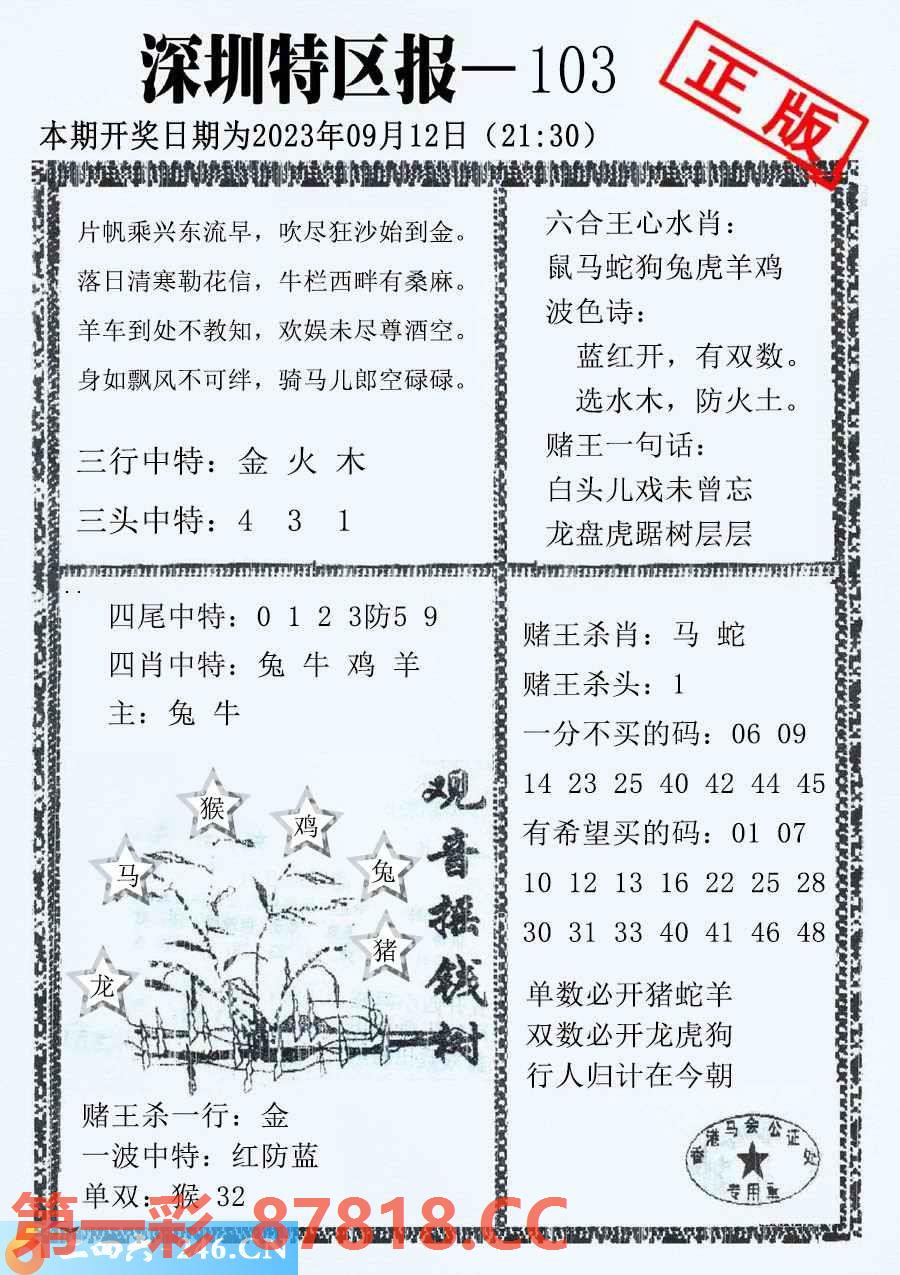 深圳特区报—103
正版
本期开奖日期为2023年09月12日（21:30）
片帆乘兴东流早，吹尽狂沙始到金。
落日清寒勒花信，牛栏西畔有桑麻。
羊车到处不教知，欢娱未尽尊酒空。
身如飘风不可绊，骑马儿郎空碌碌。
三行中特：金 火 木
三头中特：4 3 1
六合王心水肖：
鼠马蛇狗兔虎羊鸡
波色诗：
蓝红开，有双数。
选水木，防火土。
赌王一句话：
白头儿戏未曾忘
龙盘虎踞树层层
四尾中特：0 1 2 3防5 9
四肖中特：兔 牛 鸡 羊
主：兔 牛
猴
鸡
马
兔
猪
龙
观音摇钱树
赌王杀一行：金
一波中特：红防蓝
单双：猴 32
赌王杀肖：马 蛇
赌王杀头：1
一分不买的码：06 09
14 23 25 40 42 44 45
有希望买的码：01 07
10 12 13 16 22 25 28
30 31 33 40 41 46 48
单数必开猪蛇羊
双数必开龙虎狗
行人归计在今朝
香港马会公证处
专用章
第一彩 87818.CC
246.CN